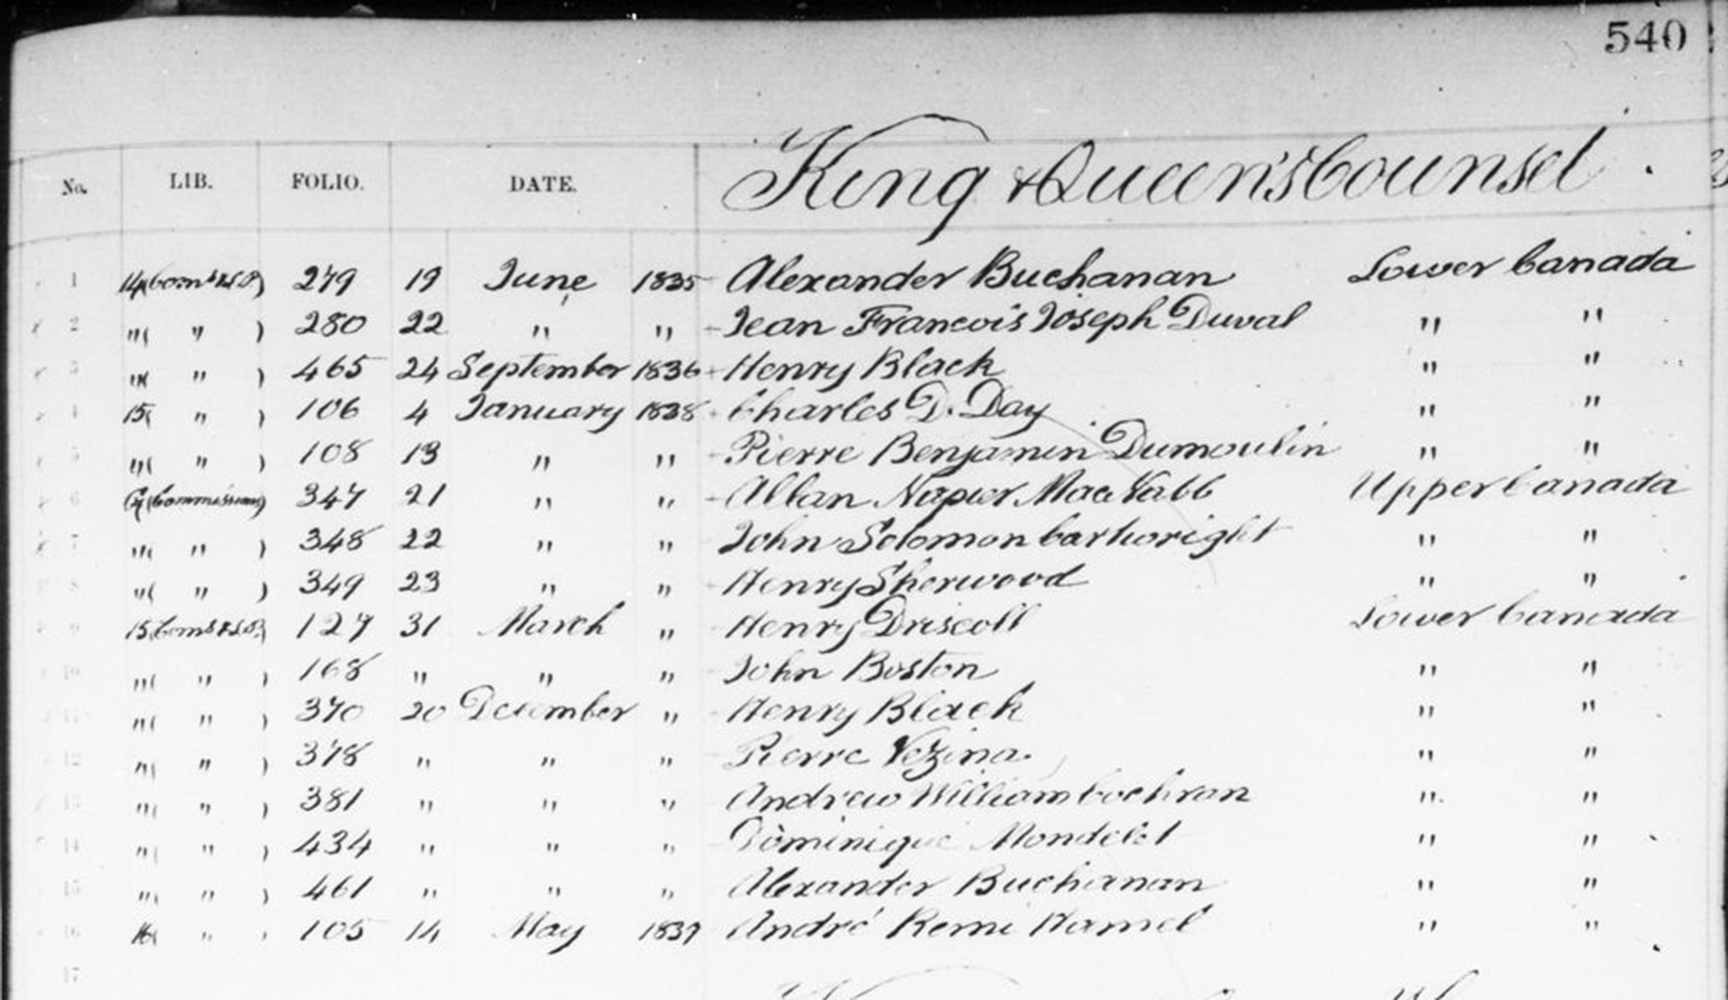 540
No. LIB. FOLIO. DATE. King & Queen's Counsel.
1 14 (Coms & L.P.) 279 19 June 1835 Alexander Buchanan Lower Canada
2 " ( " ) 280 22 " " Jean Francois Joseph Duval " "
3 " ( " ) 465 24 September 1836 Henry Black " "
4 15 ( " ) 106 4 January 1838 Charles D. Day " "
5 " ( " ) 108 13 " " Pierre Benjamin Dumoulin " "
6 (Commissions) 347 21 " " Allan Napier MacNabb Upper Canada
7 " ( " ) 348 22 " " John Solomon Cartwright " "
8 " ( " ) 349 23 " " Henry Sherwood " "
9 15 (Coms & L.P.) 127 31 March " Henry Driscoll Lower Canada
10 " ( " ) 168 " " " John Boston " "
11 " ( " ) 370 20 December " Henry Black " "
12 " ( " ) 378 " " " Pierre Vezina " "
13 " ( " ) 381 " " " Andrew William Cochran " "
14 " ( " ) 434 " " " Dominique Mondelet " "
15 " ( " ) 461 " " " Alexander Buchanan " "
16 16 ( " ) 105 14 May 1839 André Remi Hamel " "
17